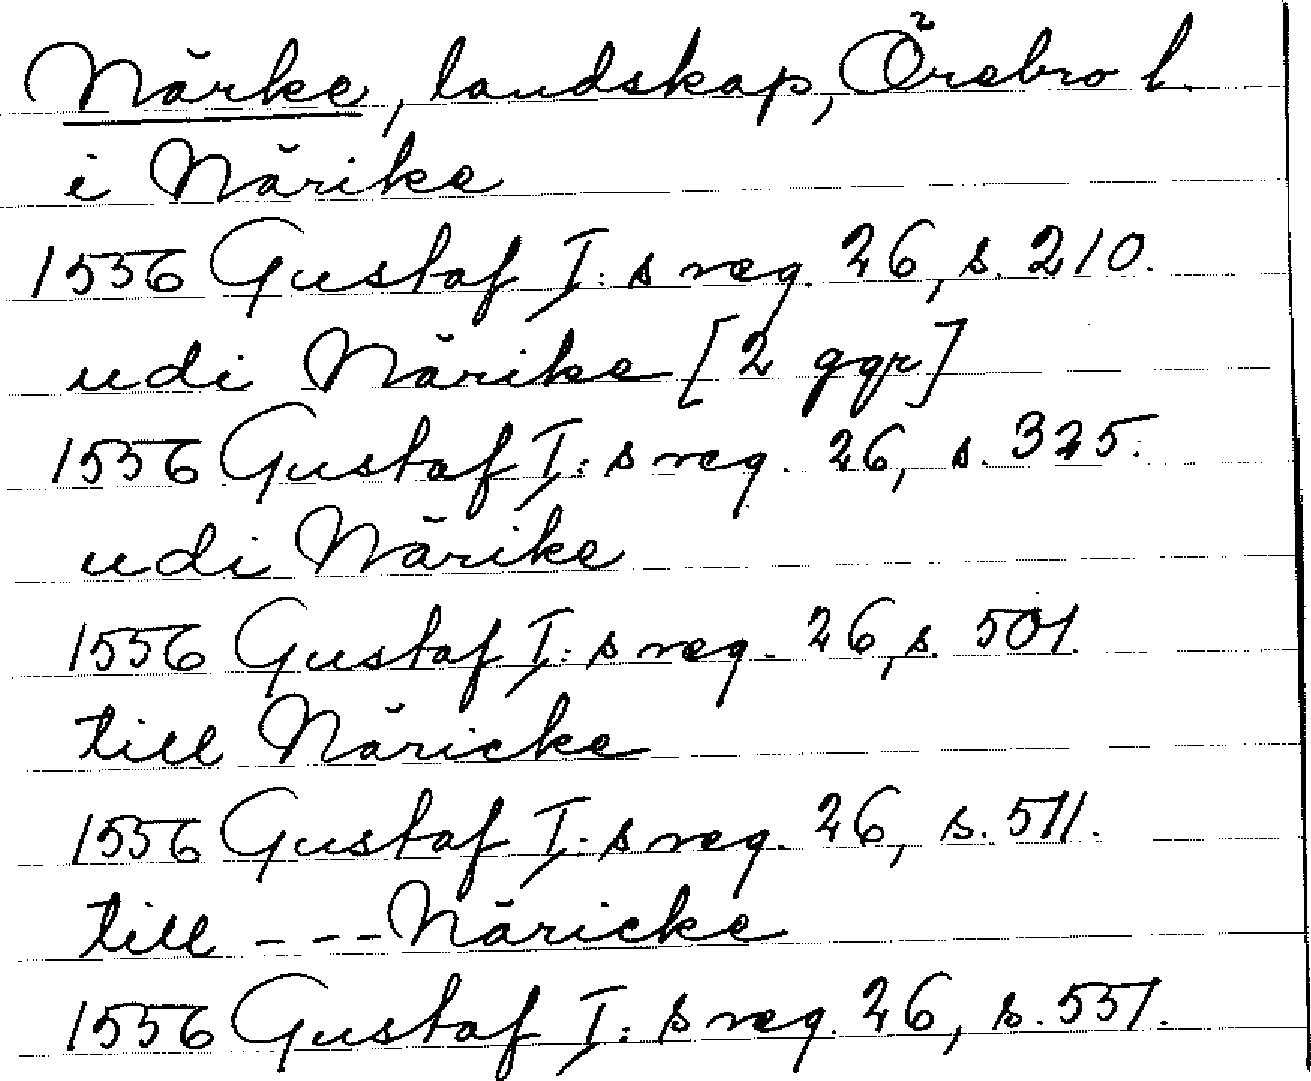 Närke, landskap, Örebro l.
i Närike
1556 Gustaf I:s reg. 26, s. 210.
udi Närike [2 ggr]
1556 Gustaf I:s reg. 26, s. 325.
udi Närike
1556 Gustaf I:s reg. 26, s. 501.
till Näricke
1556 Gustaf I:s reg. 26, s. 511.
till - - - Näricke
1556 Gustaf I:s reg. 26, s. 551.